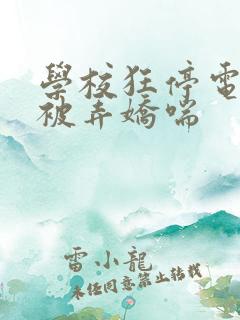 學校狂停電
被弄嬌喘
雷小龍
未經同意禁止轉載